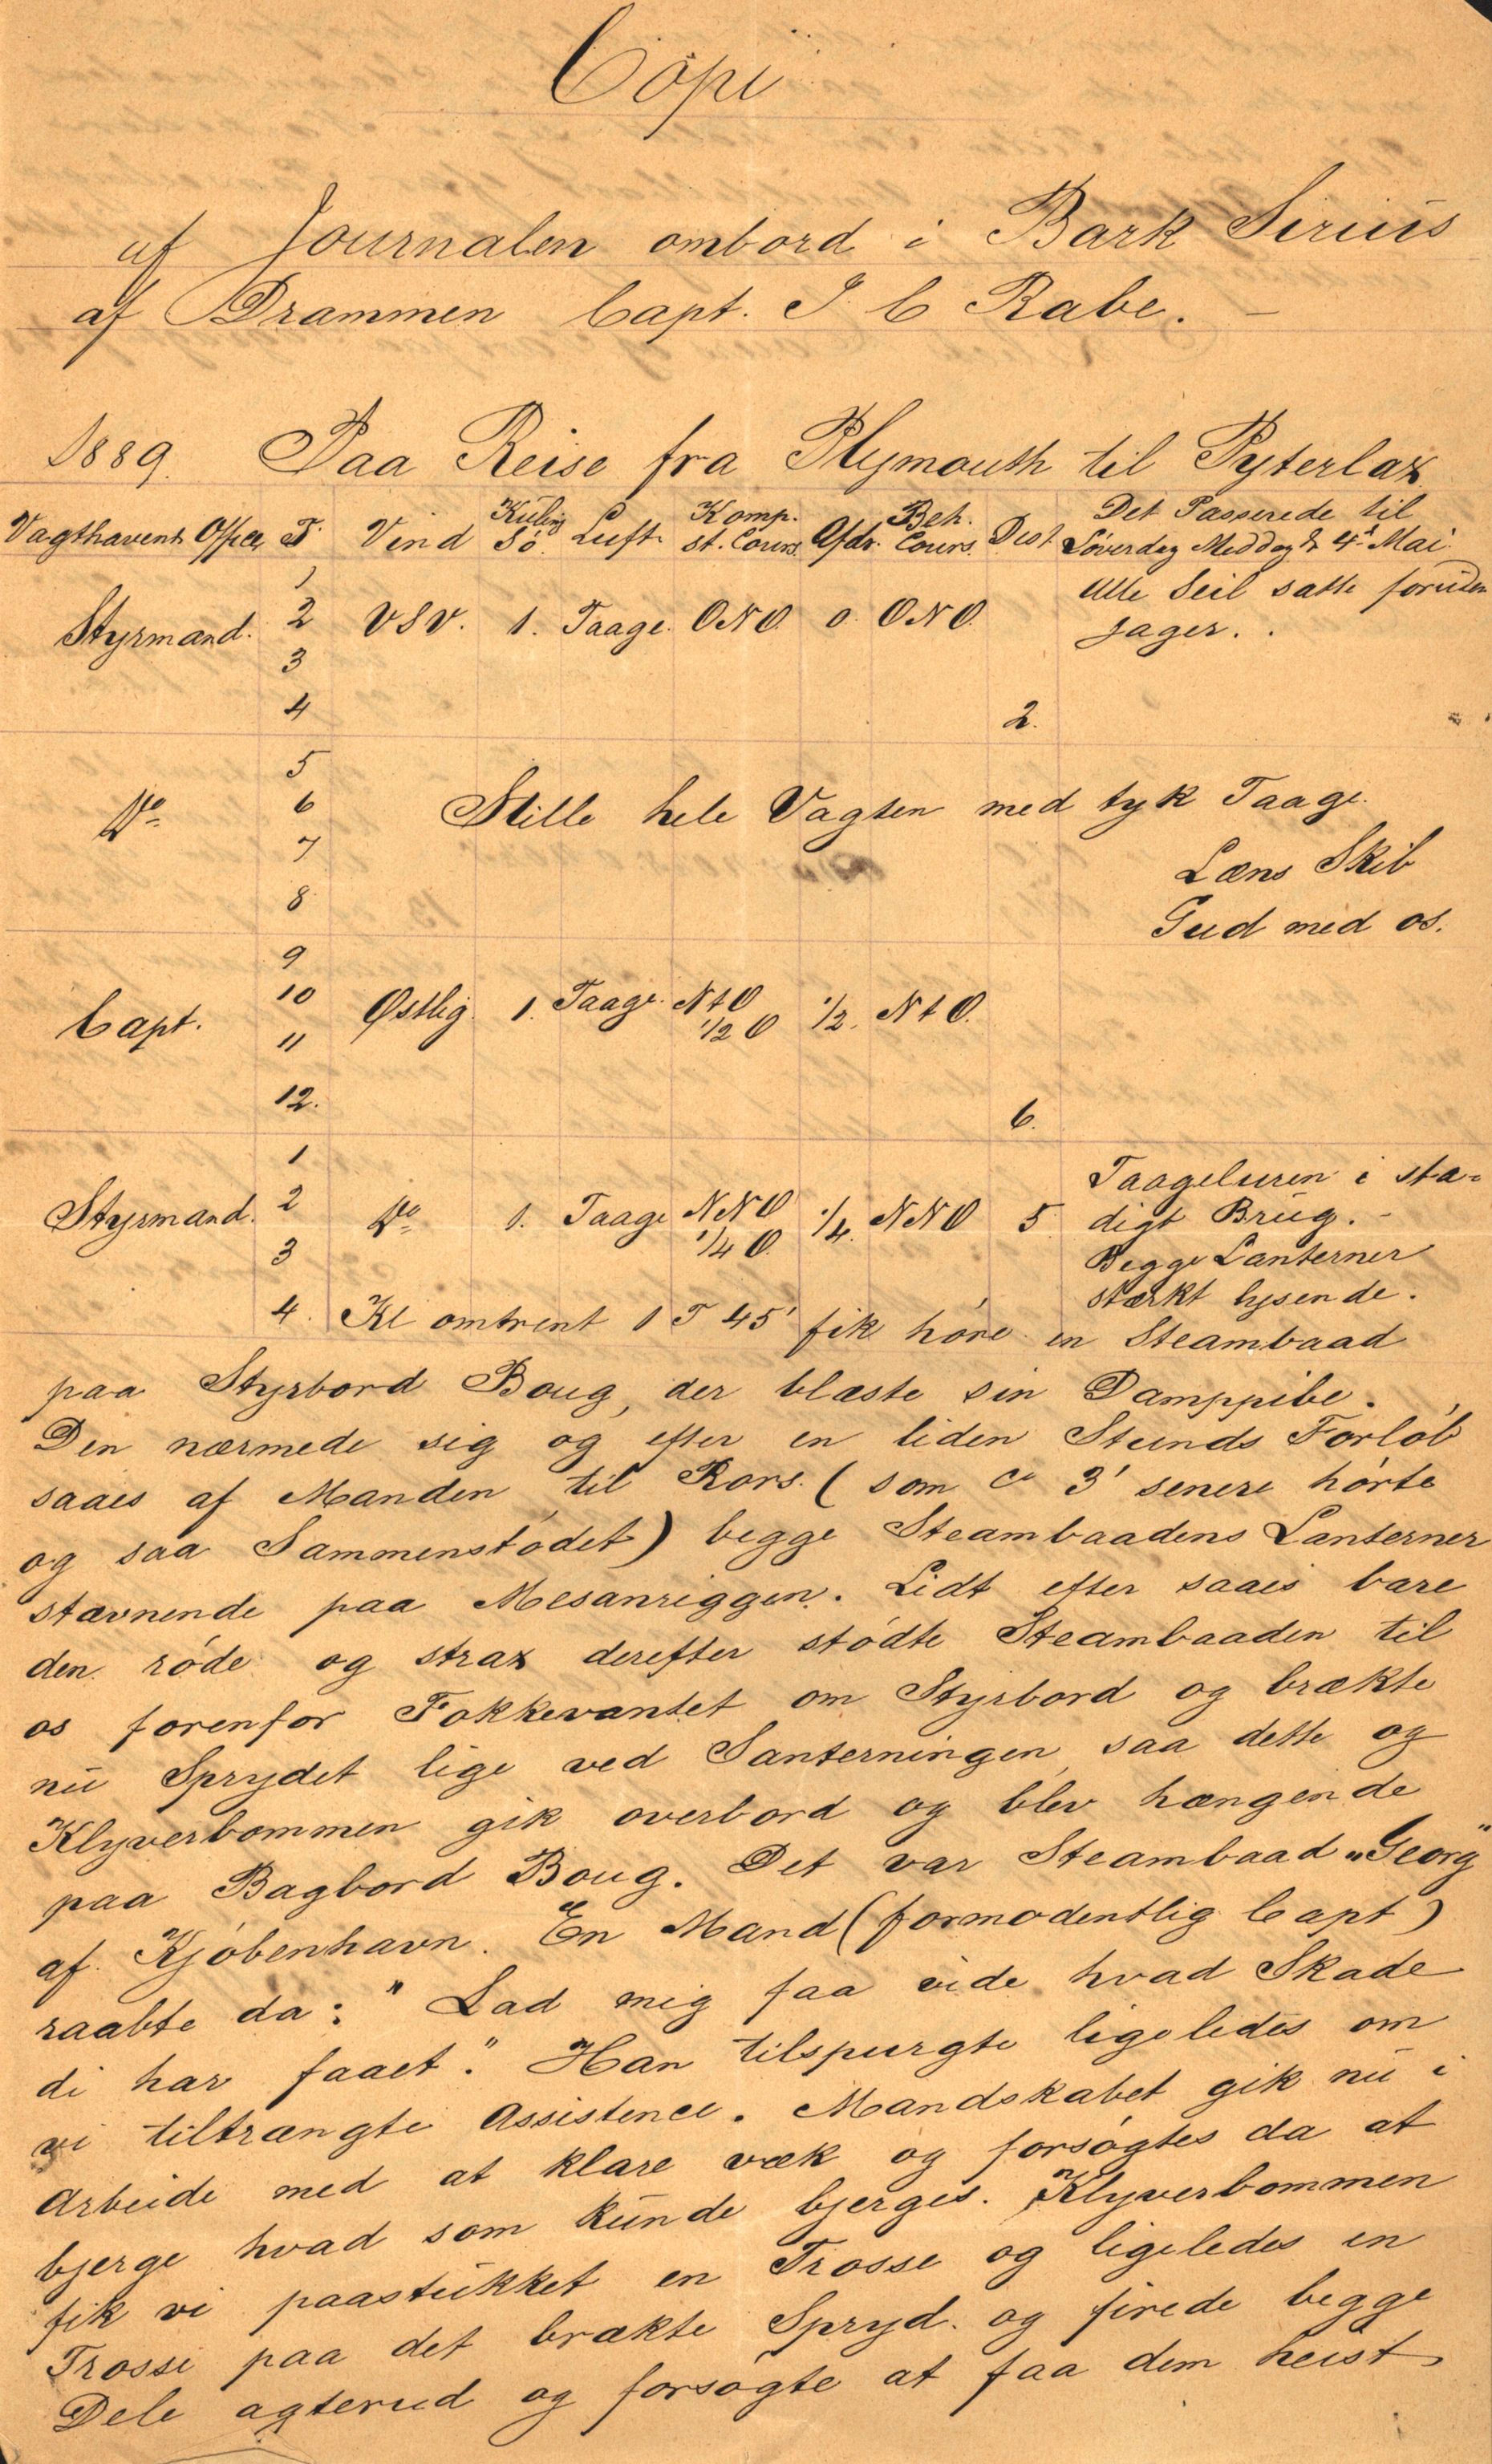 Copi
af Journalen ombord i Bark Sirius
af Drammen Capt. J. C Rabe. –
1889. Paa Reise fra Plymouth til Pyterlax
Vagthavende Officer T. Vind Kuling Sö. Luft Komp. st. Cours. Afdr. Beh. Cours. Dist. Det Passerede til Löverdag Meddag d. 4de Mai.
1 Alle Seil satte foruden
Styrmand. 2 VSV. 1. Taage. ONO. 0. ONO. Jager.
3
4 2.
5
Do 6 Stille hele Vagten med tyk Taage.
7 Læns Skib
8 Gud med os.
9
Capt. 10 Østlig. 1. Taage. NtO ½ O ½. NtO.
11
12. 6.
1 Taageluren i sta-
Styrmand. 2 Do 1. Taage NNO ¼ O. ¼. NNO 5. digt Brug. -
3 Begge Lanterner
stærkt lysende.
4. Kl omtrent 1 T 45' fik höre en Steambaad
paa Styrbord Boug, der blæste sin Damppibe.
Den nærmede sig og efter en liden Stunds Forlöb
saaes af Manden til Rors. (som ca 3' senere hörte
og saa Sammenstödet) begge Steambaadens Lanterner
stævnende paa Mesanriggen. Lidt efter saaes bare
den röde og strax derefter stödte Steambaaden til
os forenfor Fokkevantet om Styrbord og brækte
nu Sprydet lige ved Santerningen, saa dette og
Klyverbommen gik overbord og blev hængende
paa Bagbord Boug. Det var Steambaad "Georg"
af Kjöbenhavn. En Mand (formodentlig Capt)
raabte da: "Lad mig faa vide hvad Skade
di har faaet." Han tilspurgte ligeledes om
vi tiltrængte Assistence. Mandskabet gik nu i
Arbeide med at klare væk og forsögtes da at
bjerge hvad som kunde bjerges. Klyverbommen
fik vi paastukket en Trosse og ligeledes en
Trosse paa det brækte Spryd. og firede begge
Dele agterud og forsögte at faa dem heist